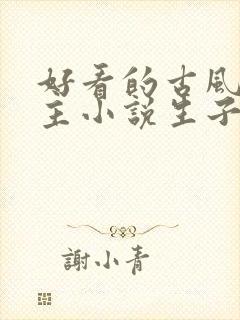 好看的古風
主小說生子
謝小青